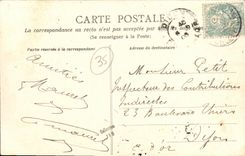 CARTE POSTALE
La correspondance au recto n'est pas acceptée par
(Se renseigner à la Poste)
Correspondance
Adresse du destinataire
35
Amitiés
Marcel
Monsieur Petit
Inspecteur des Contributions
Indirectes
23 Boulevard Thiers
Dijon
C. d'or